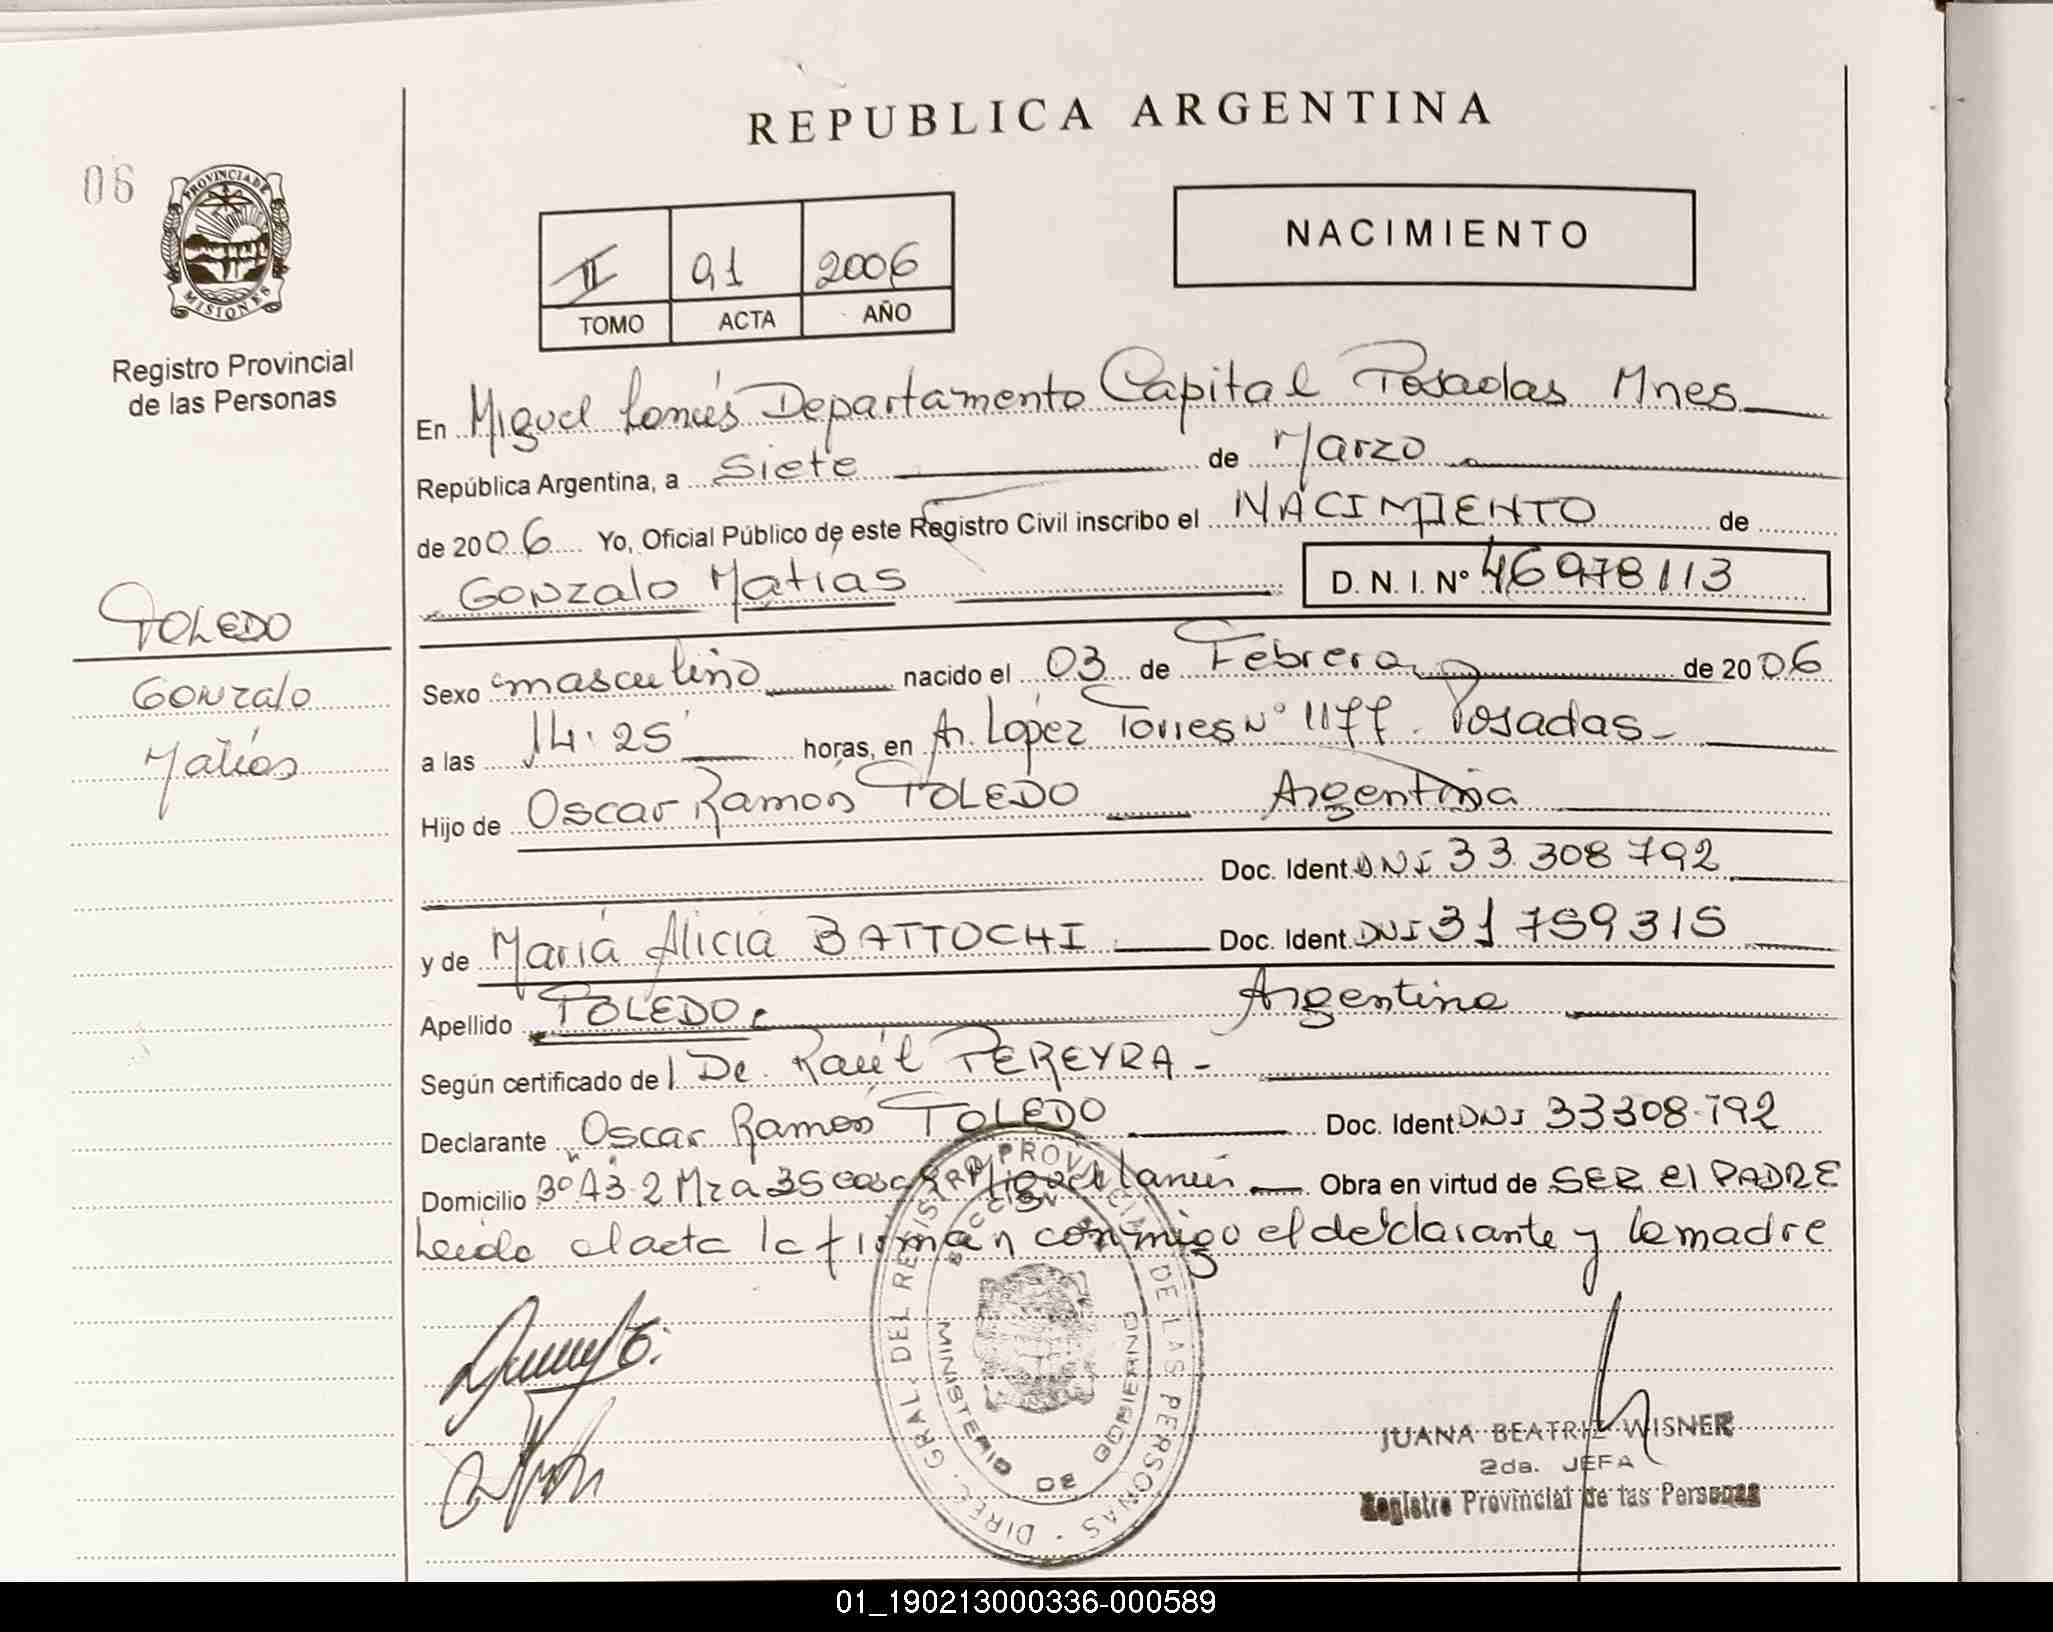 REPUBLICA ARGENTINA
06
PROVINCIA DE
MISIONES
Registro Provincial
de las Personas
II 91 2006
TOMO ACTA AÑO
NACIMIENTO
En Miguel Lanús Departamento Capital Posadas Mnes
República Argentina, a Siete de Marzo
de 2006 Yo, Oficial Público de este Registro Civil inscribo el NACIMIENTO de
Gonzalo Matías D. N. I. Nº 46978113
TOLEDO
Gonzalo
Matías
Sexo masculino nacido el 03 de Febrero de 2006
a las 14:25 horas, en Av. López Torres Nº 1177. Posadas
Hijo de Oscar Ramón TOLEDO Argentina
Doc. Ident DNI 33.308 792
y de María Alicia BATTOCHI Doc. Ident DNI 31 759315
Apellido TOLEDO Argentina
Según certificado de Raúl PEREYRA -
Declarante Oscar Ramón TOLEDO Doc. Ident DNI 33308.792
Domicilio Mza 35 casa Miguel Lanús Obra en virtud de SER el PADRE
Leida el acta la firman conmigo el declarante y la madre
DIREC. GRAL. DEL REGISTRO PROVINCIAL DE LAS PERSONAS
MINISTERIO DE GOBIERNO
JUANA BEATRIZ WISNER
2da. JEFA
Registro Provincial de las Personas
01_190213000336-000589